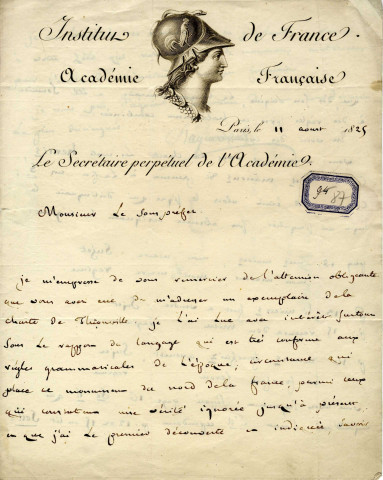 Institut de France.
Académie Française
Paris, le 11 aout 1825
Le Secrétaire perpétuel de l'Académie.
94
87
Monsieur Le Sous prefet
je m'empresse de vous remercier de l'attention obligeante
que vous avez eue de m'adresser un exemplaire de la
charte de Thionville je l'ai lue avec interêt surtout
sous le rapport du langage qui est très conforme aux
règles grammaticales de l'époque, circonstance qui
place ce monument du nord de la france, parmi ceux
qui constatent une vérité ignorée jusqu'à présent
et que j'ai le premier découverte et indiquée savoir